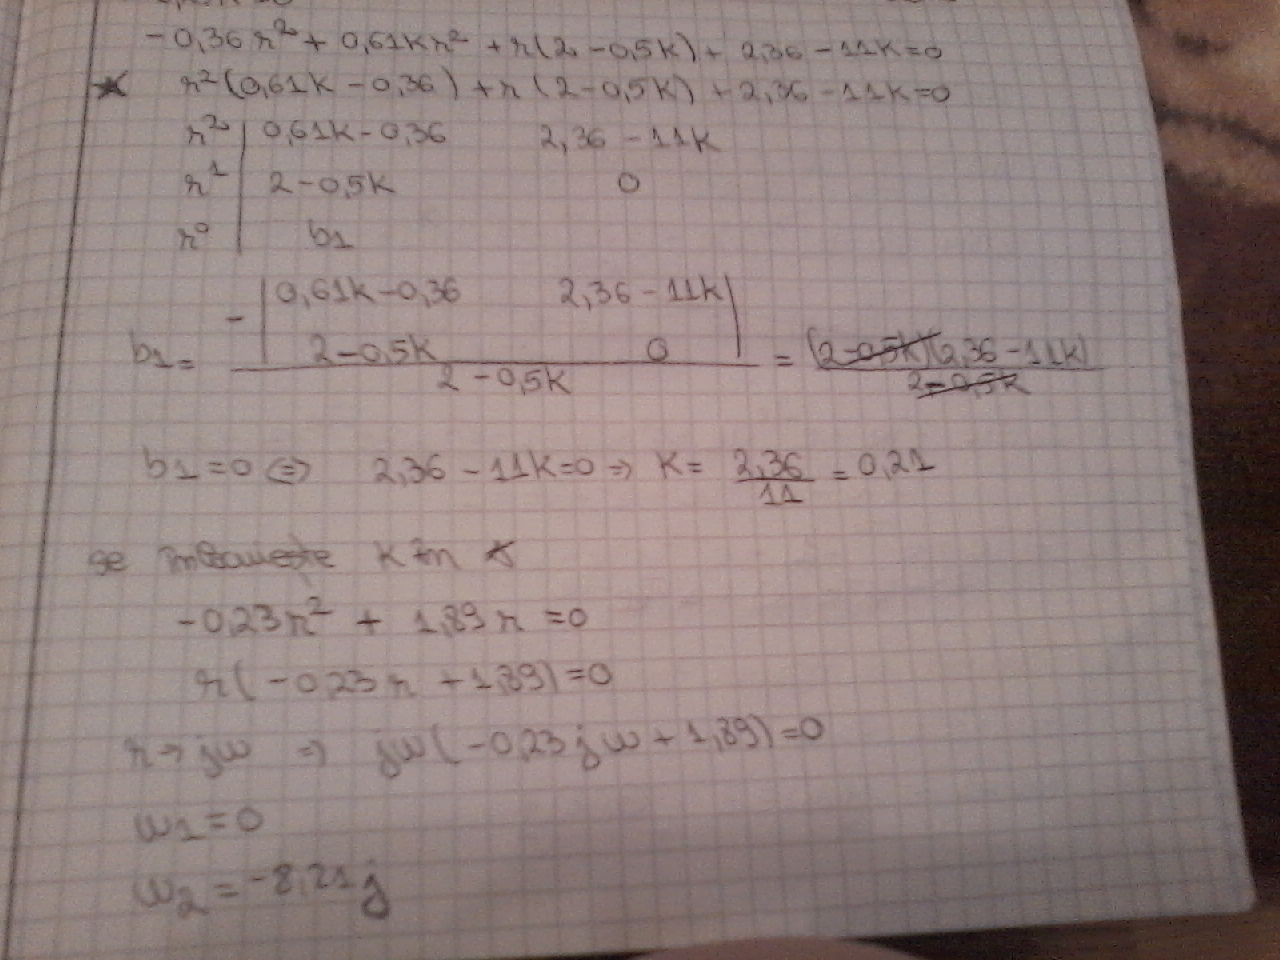 -0,36r² + 0,61Kr² + r(2 - 0,5K) + 2,36 - 11K = 0
* r²(0,61K - 0,36) + r(2 - 0,5K) + 2,36 - 11K = 0
r² | 0,61K - 0,36 2,36 - 11K
r¹ | 2 - 0,5K 0
r⁰ | b1
- | 0,61K - 0,36 2,36 - 11K |
b1 = | 2 - 0,5K 0 | = (2 - 0,5K)(2,36 - 11K)
2 - 0,5K 2 - 0,5K
b1 = 0 ⇔ 2,36 - 11K = 0 ⇒ K = 2,36 / 11 = 0,21
se K în *
-0,23r² + 1,89r = 0
r(-0,23r + 1,89) = 0
r → jω ⇒ jω(-0,23jω + 1,89) = 0
ω1 = 0
ω2 = -8,21j